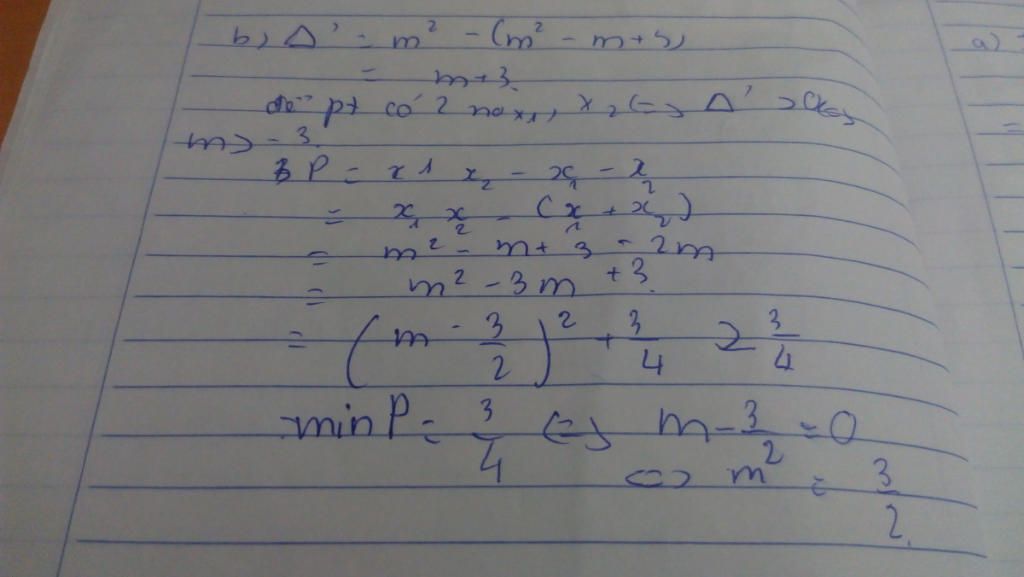 b) Δ' = m² - (m² - m + 3)
= m + 3.
để pt có 2 no x₁, x₂ <=> Δ' > 0 <=>
m > -3.
P = x1 x₂ - x₁ - x₂
= x₁ x₂ - (x₁ + x₂)
= m² - m + 3 - 2m
= m² - 3m + 3.
= (m - 3/2)² + 3/4 ≥ 3/4
min P = 3/4 <=> m - 3/2 = 0
<=> m = 3/2.
a)
=